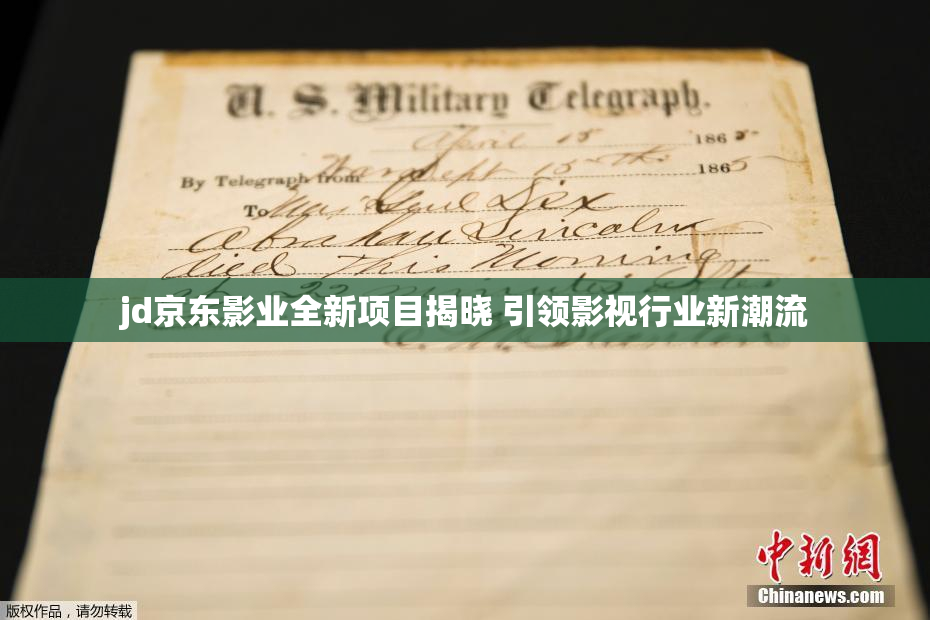 U. S. Military Telegraph.
April 15 1865
By Telegraph from War Dept 15th 1865
To Maj Genl Dix
Abraham Lincoln
died This Morning
at 22 minutes after
jd京东影业全新项目揭晓 引领影视行业新潮流
中新網
Chinanews.com
版权作品，请勿转载